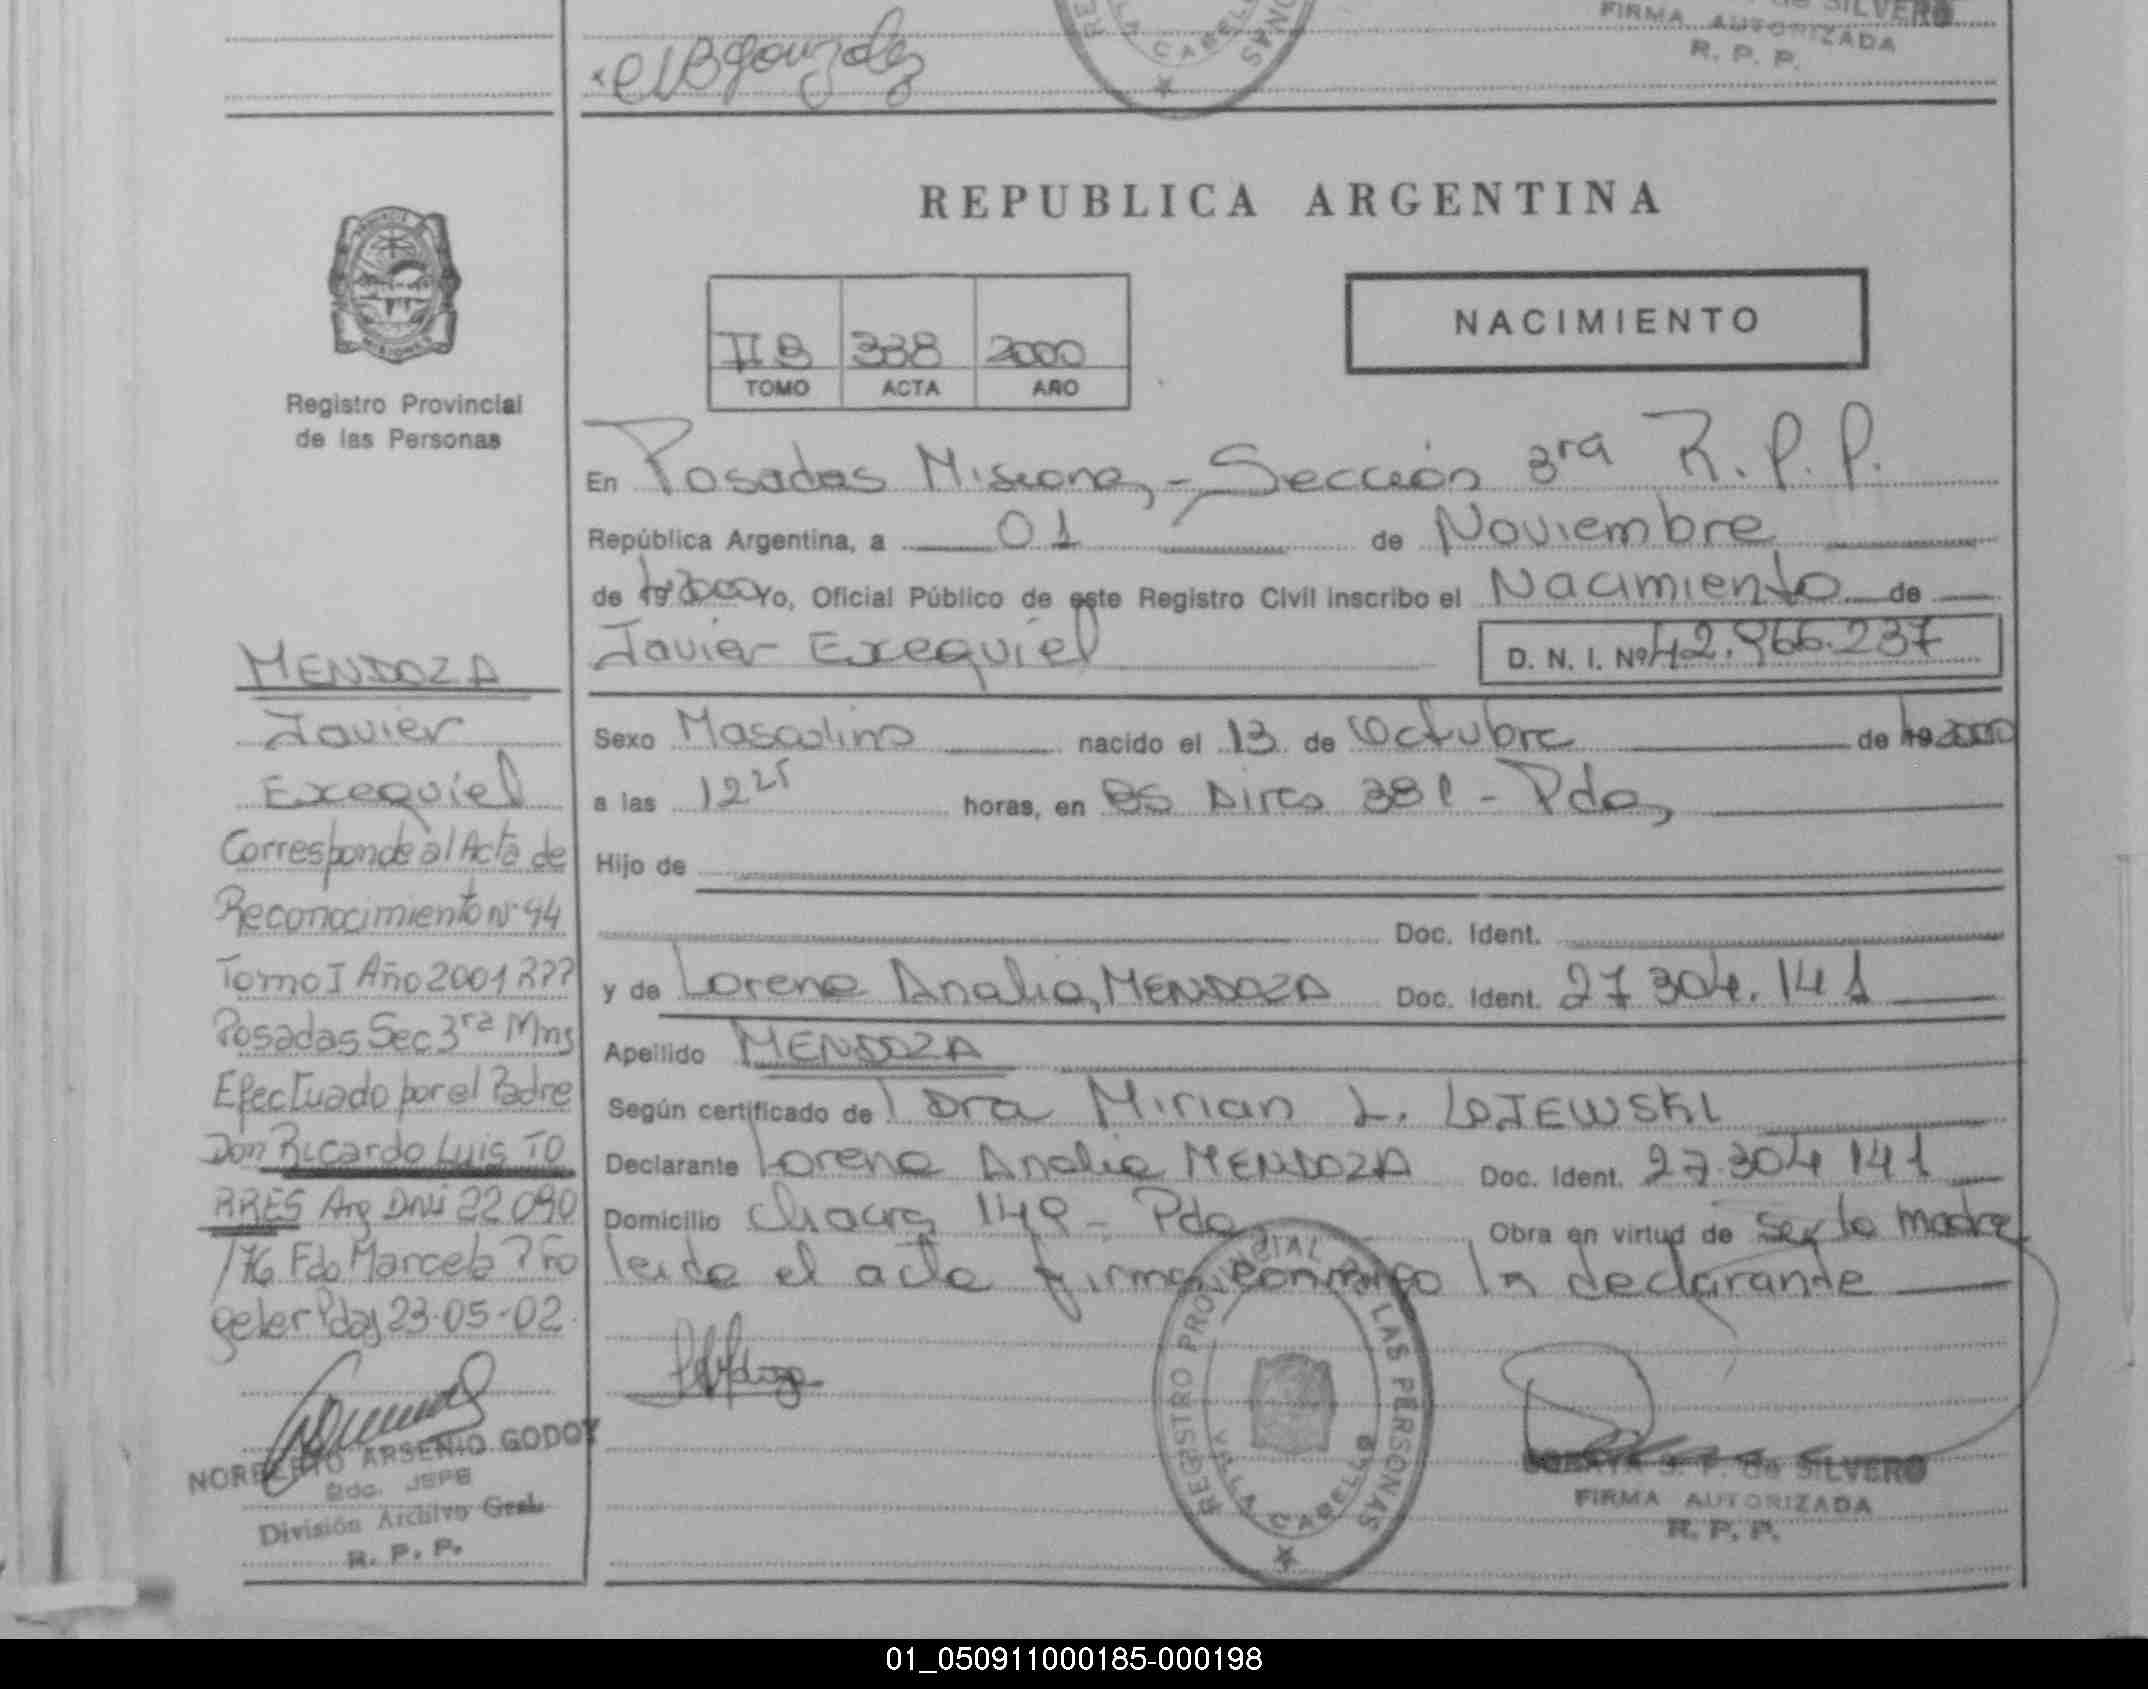 FIRMA AUTORIZADA
R. P. P.
REPUBLICA ARGENTINA
NACIMIENTO
II B 338 2000
TOMO ACTA AÑO
Registro Provincial
de las Personas
En Posadas Misiones,- Sección 3ra R.P.P.
República Argentina, a 01 de Noviembre
de 2000 Yo, Oficial Público de este Registro Civil inscribo el Nacimiento de
Javier Exequiel D. N. I. Nº 42.966.237
Sexo Masculino nacido el 13 de Octubre de 19 2000
a las 12 25 horas, en BS Aires 381 - Pdas,
Hijo de
Doc. Ident.
y de Lorena Analia, MENDOZA Doc. Ident. 27 304.141
Apellido MENDOZA
Según certificado de Dra Mirian L. LOJEWSKI
Declarante Lorena Analia MENDOZA Doc. Ident. 27.304 141
Domicilio Chacra 149 - Pdas Obra en virtud de ser la madre
leida el acta firma conmigo la declarante
REGISTRO PROVINCIAL DE LAS PERSONAS
VILLA CABELLO
de SILVERO
FIRMA AUTORIZADA
R. P. P.
MENDOZA
Javier
Exequiel
Corresponde al Acta de
Reconocimiento Nº 44
Tomo I Año 2001 RPP
Posadas Sec 3ra Mns
Efectuado por el Padre
Don Ricardo Luis TO
RRES Arg DNI 22 090
176 Fdo Marcela
Pdas 23-05-02.
NORBERTO ARSENIO GODOY
2do. JEFE
División Archivo Gral.
R. P. P.
01_050911000185-000198